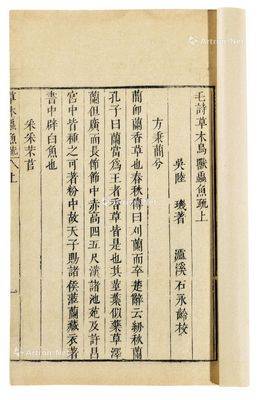 毛詩草木鳥獸蟲魚疏上
吳陸璣著 瀘溪石永齡校
方秉蕑兮
蕑卽蘭香草也春秋傳曰刈蘭而卒楚辭云紉秋蘭
孔子曰蘭當爲王者香草皆是也其莖葉似藥草澤
蘭但廣而長節節中赤高四五尺漢諸池苑及許昌
宮中皆種之可著粉中故天子賜諸侯茝蘭藏衣著
書中辟白魚也
采采芣苢
草木蟲魚疏 上
一